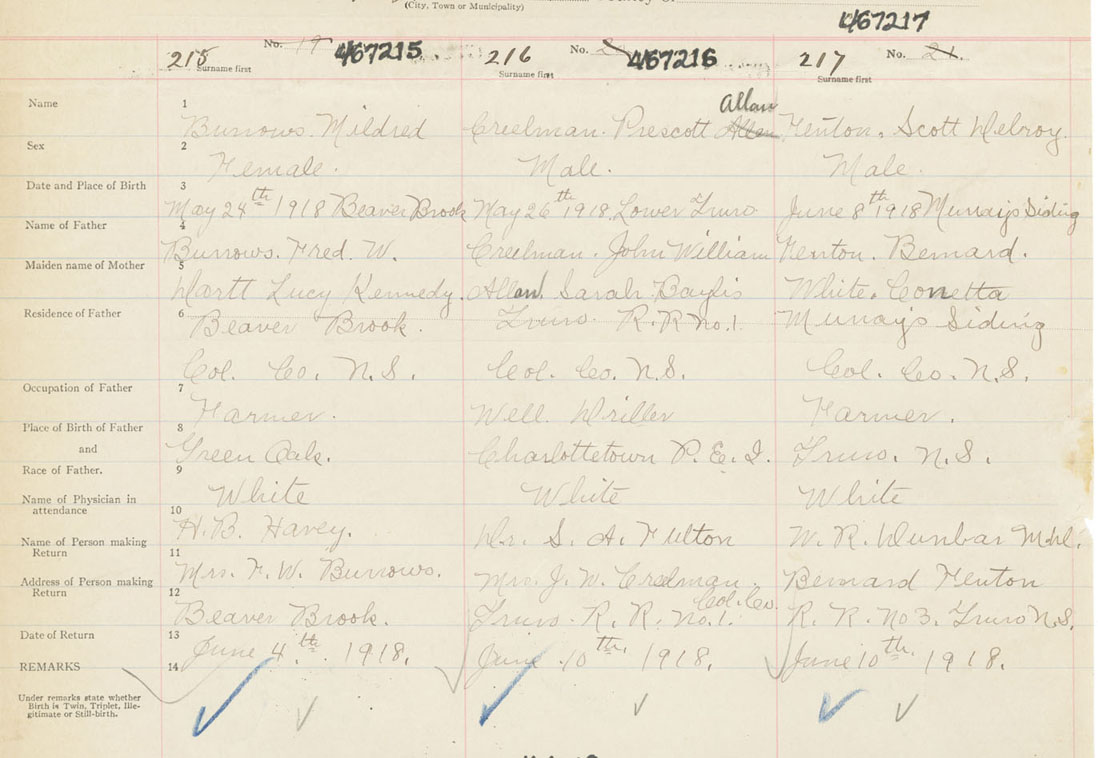 (City, Town or Municipality)
467217
215 No. 19 467215 216 No. 467216 217 No. 21.
Surname first Surname first Surname first
Name 1 Burrows. Mildred Creelman. Prescott Allan Allan Fenton. Scott Delroy.
Sex 2 Female. Male. Male.
Date and Place of Birth 3 May 24th 1918 Beaver Brook May 26th 1918. Lower Truro June 8th 1918 Murray's Siding
Name of Father 4 Burrows. Fred. W. Creelman. John William Fenton. Bernard.
Maiden name of Mother 5 Dartt Lucy Kennedy. Allan. Sarah Baylis White. Conetta
Residence of Father 6 Beaver Brook. Truro. R.R. No. 1. Murray's Siding
Col. Co. N.S. Col. Co. N.S. Col. Co. N.S.
Occupation of Father 7 Farmer. Well Driller Farmer.
Place of Birth of Father 8 Green Oak. Charlottetown P.E.I. Truro. N.S.
and
Race of Father. 9 White White White
Name of Physician in attendance 10 H. B. Havey. Dr. S. A. Fulton W. R. Dunbar M.D.
Name of Person making Return 11 Mrs. F. W. Burrows. Mrs. J. W. Creelman. Bernard Fenton
Col. Co.
Address of Person making Return 12 Beaver Brook. Truro. R. R. No. 1. R. R. No 3. Truro N.S.
Date of Return 13 June 4th. 1918. June 10th. 1918. June 10th. 1918.
REMARKS 14
Under remarks state whether
Birth is Twin, Triplet, Ille-
gitimate or Still-birth.